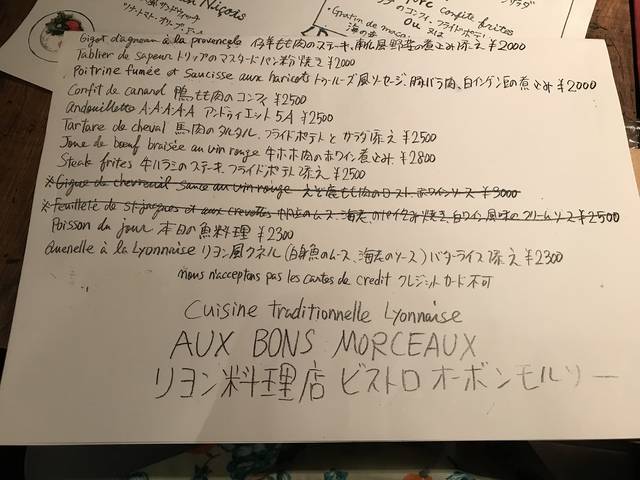 Niçois
ツナ、トマト、オリーブ、
confite frites
のコンフィ、フライドポテト
サラダ
Ou 又は
Gratin de maca
海の幸
Gigot d'agneau à la provençale 仔羊もも肉のステーキ、南仏風野菜の煮込み添え ¥2000
Tablier de sapeur トリッパのマスタードパン粉焼き ¥2000
Poitrine fumée et Saucisse aux haricots トゥルーズ風ソーセージ、豚バラ肉、白インゲン豆の煮込み ¥2000
Confit de canard 鴨もも肉のコンフィ ¥2500
Andouillette A.A.A.A.A アンドゥイエット 5A ¥2500
Tartare de cheval 馬肉のタルタル、フライドポテトとサラダ添え ¥2500
Joue de bœuf braisée au vin rouge 牛ホホ肉の赤ワイン煮込み ¥2800
Steak frites 牛ハラミのステーキ、フライドポテト添え ¥2500
※Gigue de chevreuil sauce au vin rouge えぞ鹿もも肉のロースト、赤ワインソース ¥3000
※feuilleté de St-jacques et aux crevettes のムース、海老のパイ包み焼き、白ワイン風味のクリームソース ¥2500
Poisson du jour 本日の魚料理 ¥2300
Quenelle à la Lyonnaise リヨン風クネル(白身魚のムース、海老のソース)バターライス添え ¥2300
nous n'acceptons pas les cartes de credit クレジットカード不可
Cuisine traditionnelle Lyonnaise
AUX BONS MORCEAUX
リヨン料理店 ビストロ オーボンモルソー